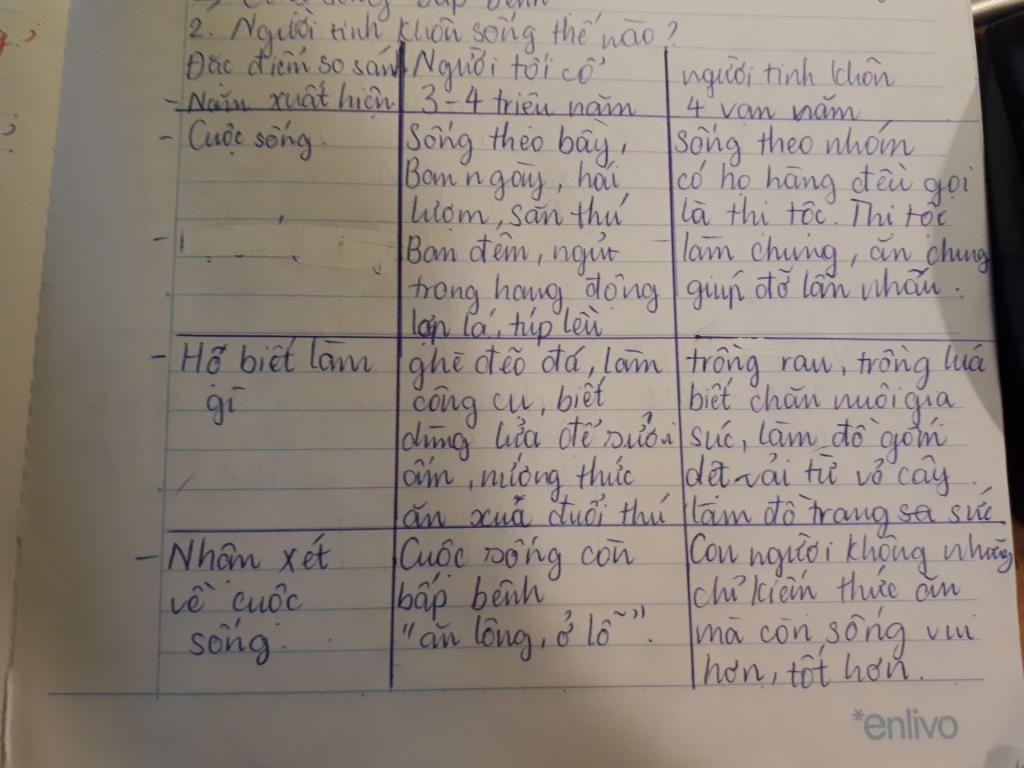 2. Người tinh khôn sống thế nào?
Đăc điểm so sánh Người tối cổ người tinh khôn
- Năm xuất hiện 3-4 triệu năm 4 vạn năm
- Cuộc sống. Sống theo bầy, sống theo nhóm
Ban ngày, hái có họ hàng đều gọi
lượm, săn thú là thị tộc. Thị tộc
- Ban đêm, ngủ làm chung, ăn chung
trong hang động giúp đỡ lẫn nhau.
lợp lá, túp lều
- Họ biết làm ghè đẽo đá, làm trồng rau, trồng lúa
gì công cụ, biết biết chăn nuôi gia
dùng lửa để sưởi súc, làm đồ gốm
ấm, nướng thức dệt vải từ vỏ cây.
ăn xuă đuổi thú làm đồ trang sức
- Nhận xét Cuộc sống còn Con người không những
về cuộc bấp bênh chỉ kiếm thức ăn
sống. "ăn lông, ở lỗ". mà còn sống vui
hơn, tốt hơn.
*enlivo